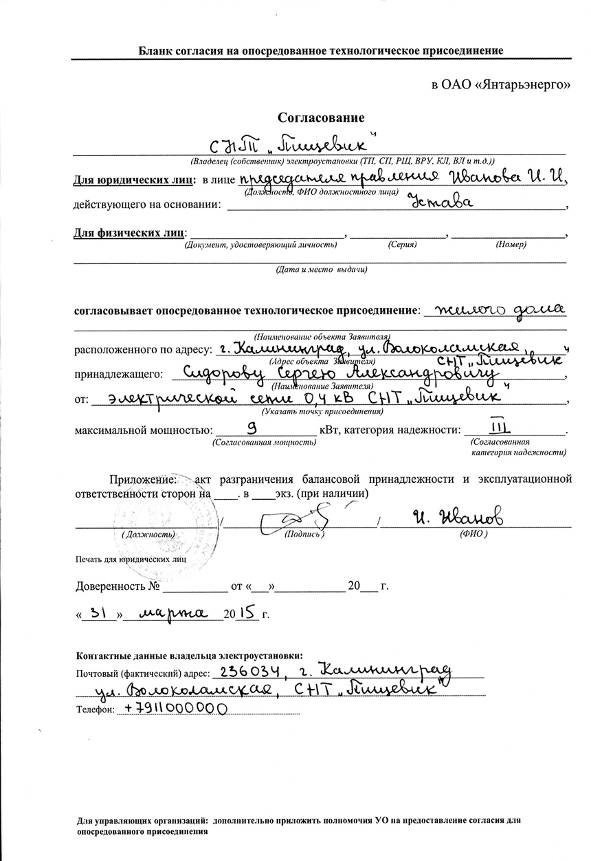 Бланк согласия на опосредованное технологическое присоединение
в ОАО «Янтарьэнерго»
Согласование
СНТ „Пищевик"
(Владелец (собственник) электроустановки (ТП, СП, РЩ, ВРУ, КЛ, ВЛ и т.д.))
Для юридических лиц: в лице председателя правления Иванова И. И,
(Должность, ФИО должностного лица)
действующего на основании: Устава ,
Для физических лиц: , , ,
(Документ, удостоверяющий личность) (Серия) (Номер)
(Дата и место выдачи)
согласовывает опосредованное технологическое присоединение: жилого дома
(Наименование объекта Заявителя)
расположенного по адресу: г. Калининград, ул. Волоколамская,
(Адрес объекта Заявителя) СНТ „Пищевик"
принадлежащего: Сидорову Сергею Александровичу ,
(Наименование Заявителя)
от: электрической сети 0,4 кВ СНТ „Пищевик" ,
(Указать точку присоединения)
максимальной мощностью: 9 кВт, категория надежности: III .
(Согласованная мощность) (Согласованная
категория надежности)
Приложение: акт разграничения балансовой принадлежности и эксплуатационной
ответственности сторон на ____. в ____экз. (при наличии)
/ / И. Иванов
(Должность) (Подпись) (ФИО)
Печать для юридических лиц
Доверенность № ___________ от «___»___________ 20___ г.
« 31 » марта 2015 г.
Контактные данные владельца электроустановки:
Почтовый (фактический) адрес: 236034, г. Калининград
ул. Волоколамская, СНТ „Пищевик"
Телефон: +7911000000
Для управляющих организаций: дополнительно приложить полномочия УО на предоставление согласия для
опосредованного присоединения